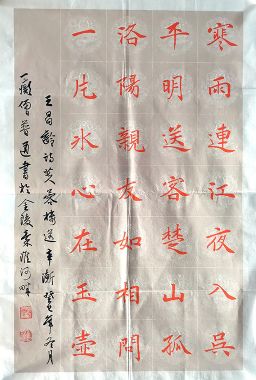 寒雨連江夜入吳
平明送客楚山孤
洛陽親友如相問
一片冰心在玉壺
王昌齡詩芙蓉樓送辛漸 年冬月
普通書於金陵秦淮河畔